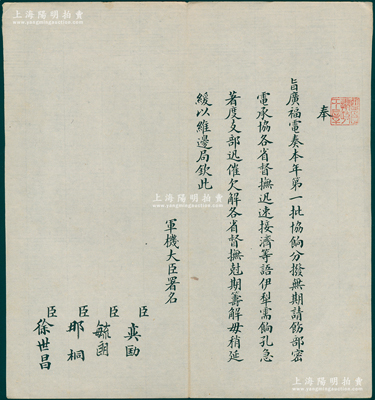 上海陽明拍賣
www.yangmingauction.com
奉
旨廣福電奏本年第一批協餉分撥無期請飭部密
電承協各省督撫迅速接濟等語伊犂需餉孔急
著度支部迅催欠解各省督撫尅期籌解毋稍延
緩以維邊局欽此
軍機大臣署名
臣奕劻
臣毓朗
臣那桐
臣徐世昌
上海陽明拍賣